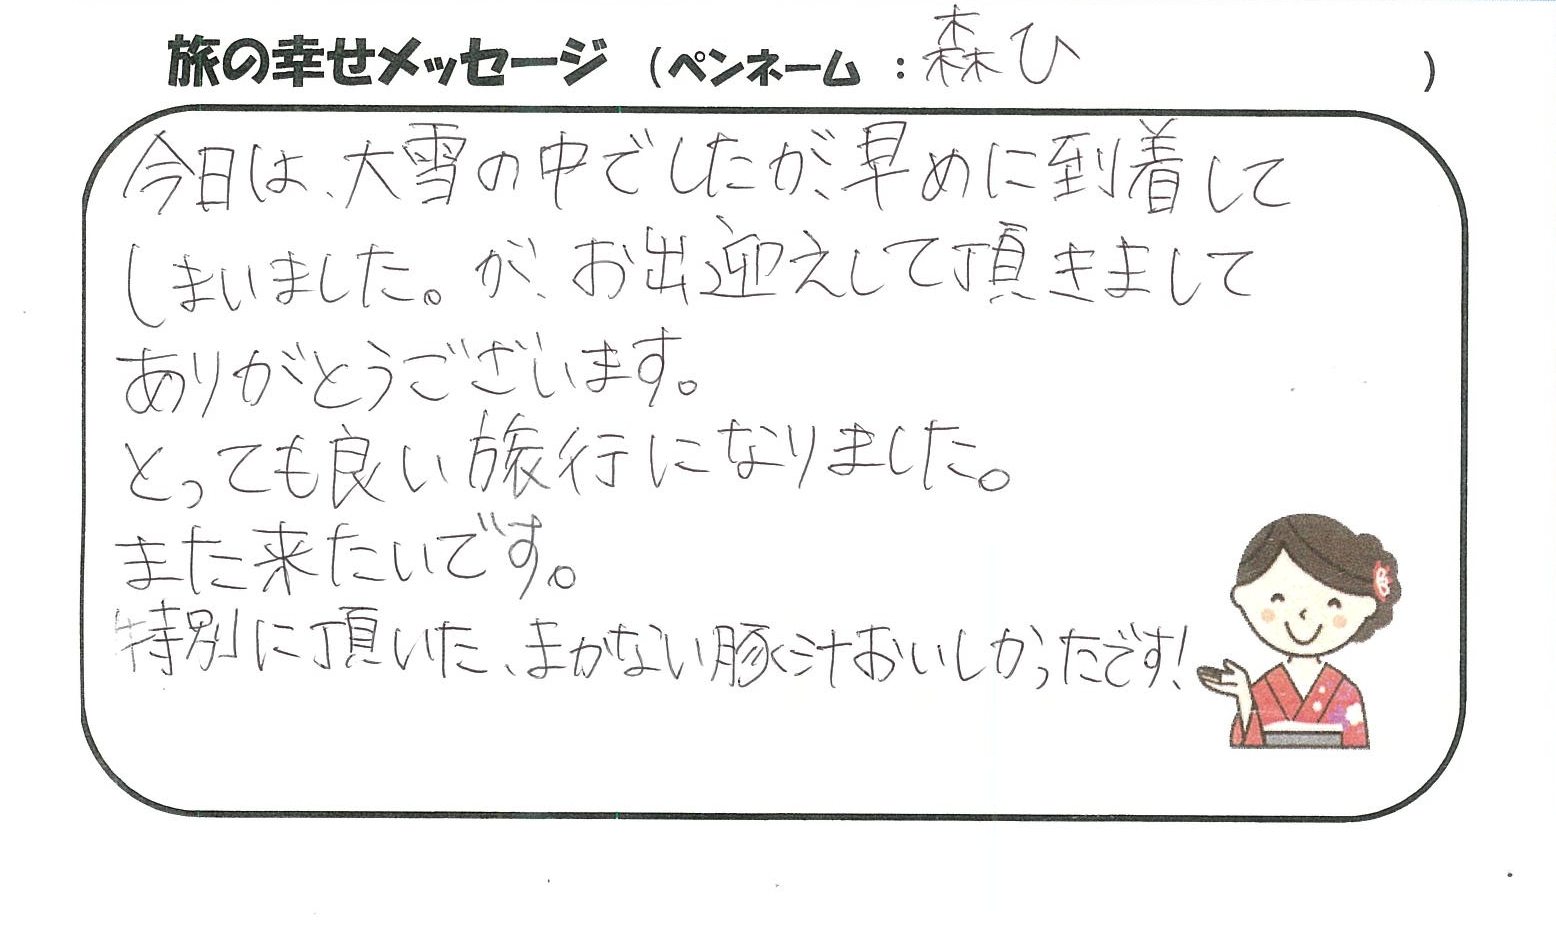 旅の幸せメッセージ (ペンネーム : 森ひ )
今日は、大雪の中でしたが、早めに到着して
しまいました。が、お出迎えして頂きまして
ありがとうございます。
とっても良い旅行になりました。
また来たいです。
特別に頂いた、まかない豚汁おいしかったです!